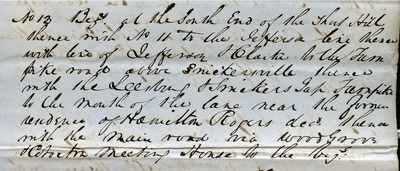 No 13 Beg. at the South End of the Short Hill
thence with No 11 to the Jefferson line thence
with line of Jefferson & Clarke to the Turn
pike road above Snickersville thence
with the Leesburg & Snickers Gap Turnpike
to the mouth of the lane near the former
residence of Hamilton Rogers decd thence
with the main road via Woodgrove
& Ketoctin meeting House to the Beg.